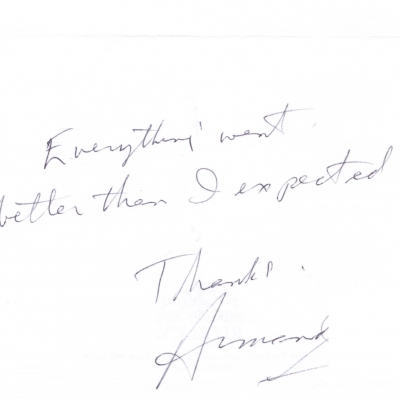 Everything went
better than I expected
Thanks.
Armand